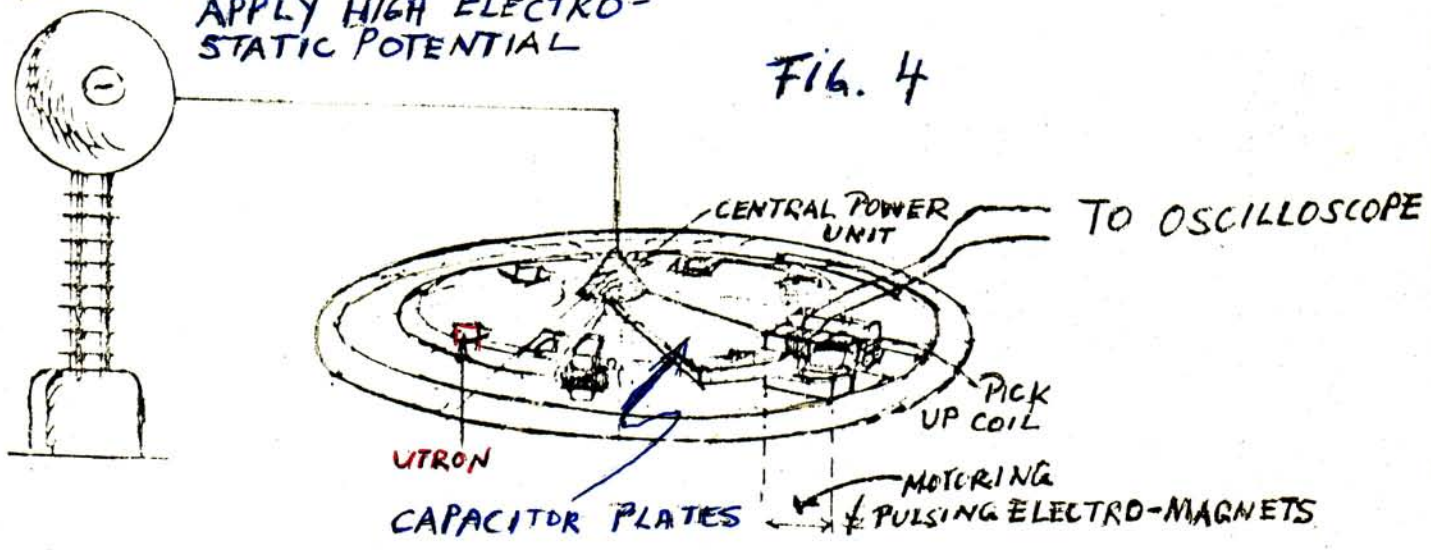 APPLY HIGH ELECTRO-
STATIC POTENTIAL
FIG. 4
CENTRAL POWER
UNIT
TO OSCILLOSCOPE
PICK
UP COIL
UTRON
CAPACITOR PLATES
MOTORING
& PULSING ELECTRO-MAGNETS